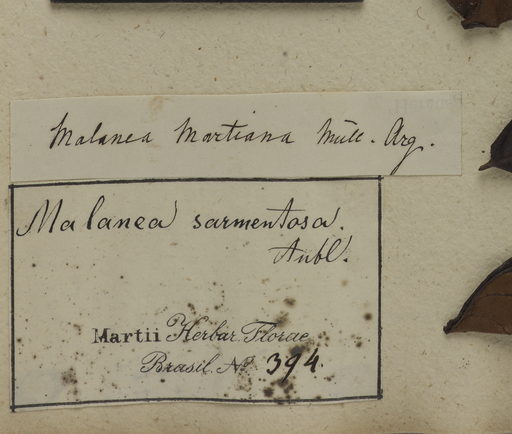 Malanea Martiana Müll. Arg.
Malanea sarmentosa.
Aubl.
Martii Herbar. Florae
Brasil. No 394.